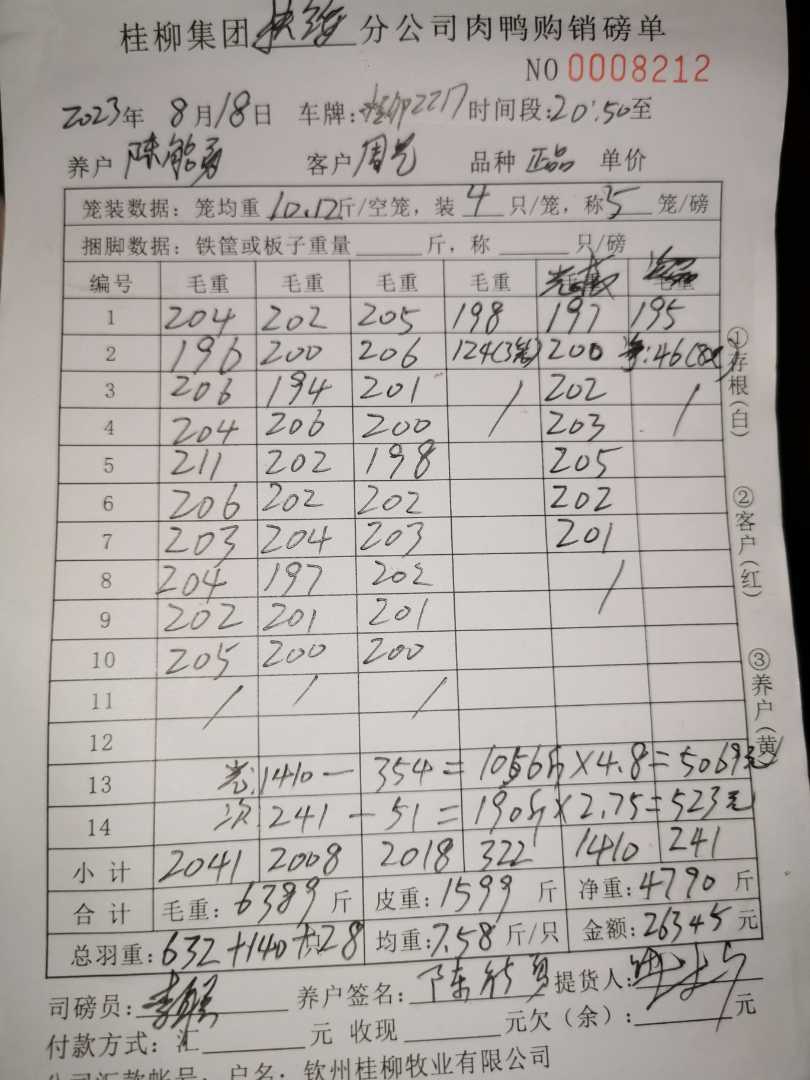 桂柳集团 分公司肉鸭购销磅单
NO 0008212
2023年 8月18日 车牌:桂卯2217 时间段:20:50至
养户 陈能勇 客户 周 品种 正品 单价
笼装数据: 笼均重 10.12斤/空笼, 装 4 只/笼, 称 5 笼/磅
捆脚数据: 铁筐或板子重量 斤, 称 只/磅
编号 毛重 毛重 毛重 毛重 毛重
1 204 202 205 198 197 195
2 196 200 206 124(3笼) 200 :46(8只)
3 206 194 201 / 202 /
4 204 206 200 203
5 211 202 198 205
6 206 202 202 202
7 203 204 203 201
8 204 197 202 /
9 202 201 201
10 205 200 200
11 / / /
12
13 光:1410-354=1056斤×4.8=5069元
14 次:241-51=190斤×2.75=523元
小计 2041 2008 2018 322 1410 241
合计 毛重:6389斤 皮重:1599斤 净重:4790斤
总羽重:632+140+28 均重:7.58斤/只 金额:26345元
司磅员: 养户签名:陈能勇 提货人:
付款方式:汇 元 收现 元欠(余): 元
公司汇款帐号: 户名: 钦州桂柳牧业有限公司
①存根(白)
②客户(红)
③养户(黄)